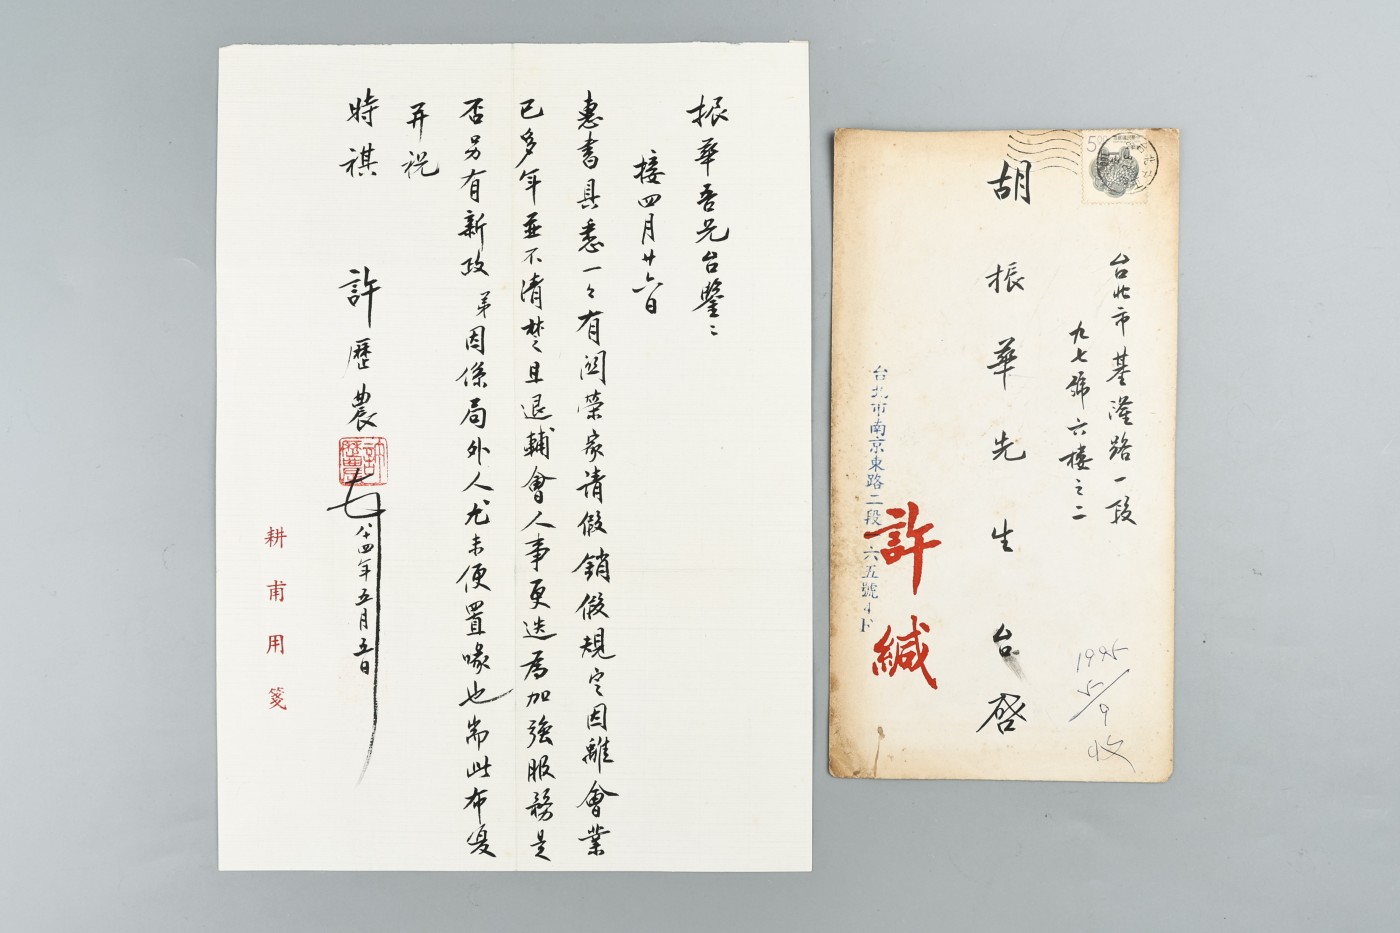 振華吾兄台鑒：
接四月廿六日
惠書具悉一々有関榮家请假銷假規定因離會業
已多年並不清楚且退輔會人事更迭為加強服務是
否另有新政弟因係局外人尤未便置喙也耑此布复
并祝
時祺
許歷農
八十四年五月五日
耕甫用箋
台北市基隆路一段
九七號六樓之二
胡振華先生台啓
許緘
台北市南京東路二段一六五號4F
1995
5/9
收
500